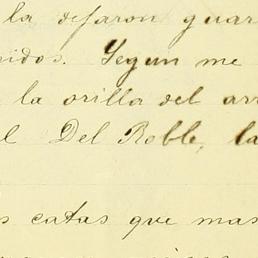 la dejaron guar
nidos. Segun me
la orilla del arr
l Del Roble, la
s catas que mas